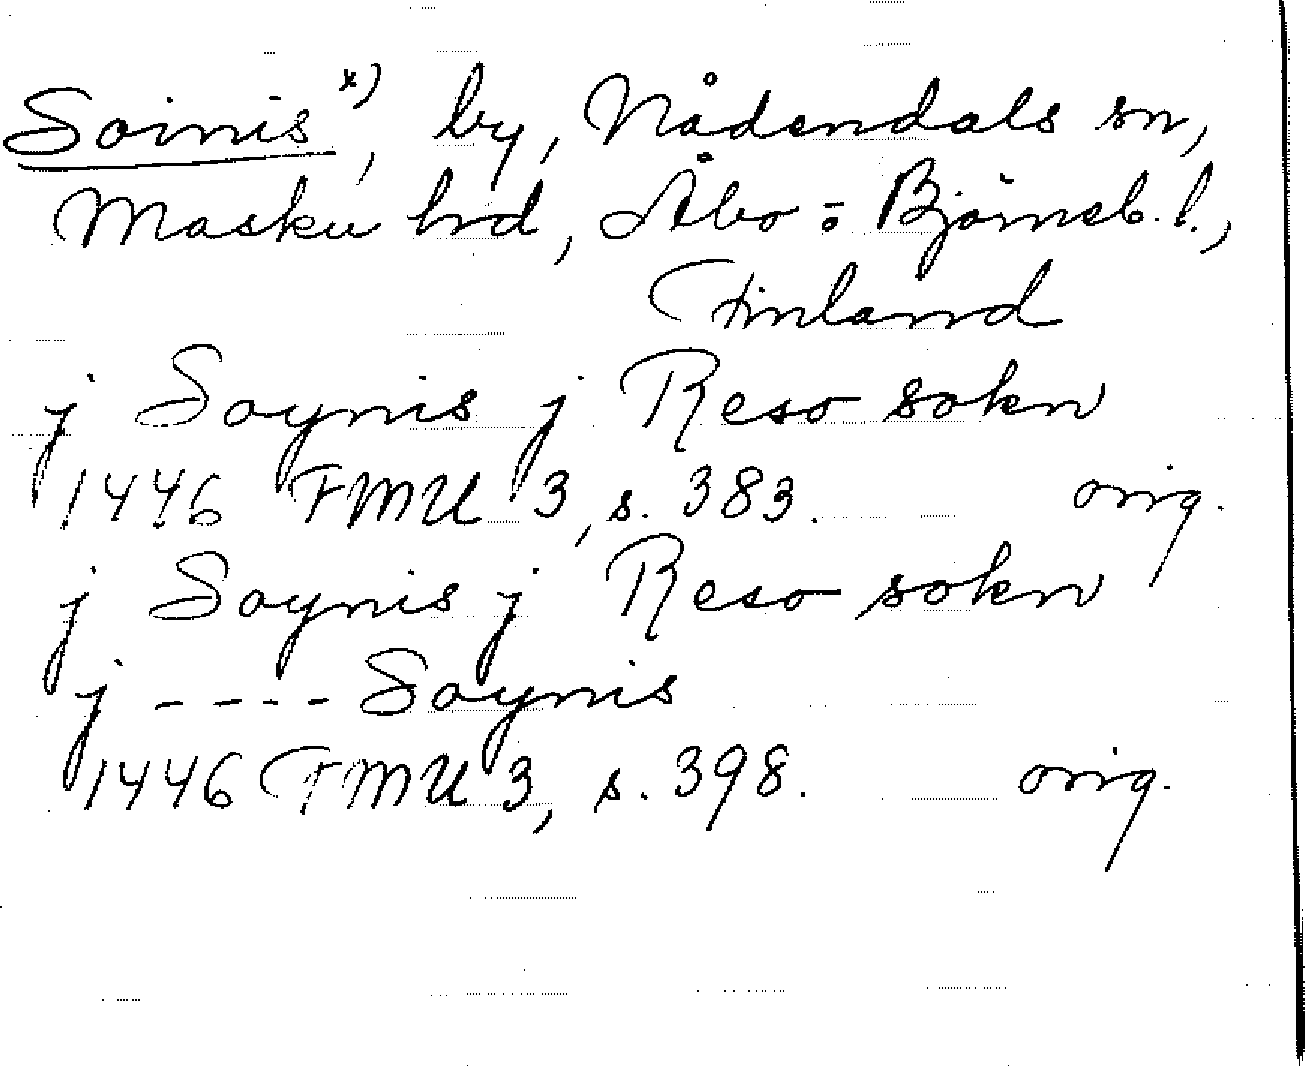 Soinis x), by, Nådendals sn,
Masku hd, Åbo = Björneb. l.,
Finland
j Soynis j Reso sokn
1446 FMU 3, s. 383. orig.
j Soynis j Reso sokn
j - - - - Soynis
1446 FMU 3, s. 398. orig.